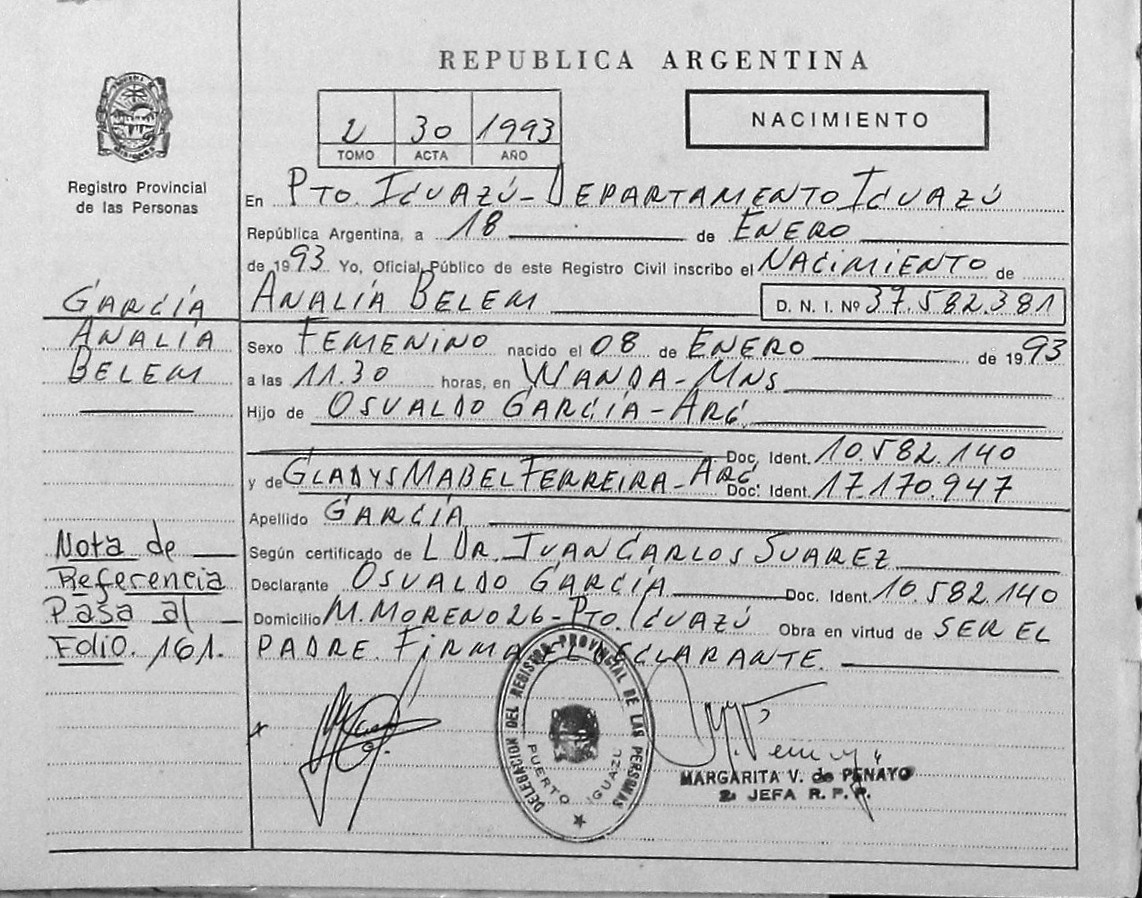 REPUBLICA ARGENTINA
NACIMIENTO
2 30 1993
TOMO ACTA AÑO
Registro Provincial
de las Personas
En PTO. IGUAZÚ - DEPARTAMENTO IGUAZÚ
República Argentina, a 18 de ENERO
de 1993 Yo, Oficial Público de este Registro Civil inscribo el NACIMIENTO de
ANALÍA BELEM D. N. I. Nº 37.582.381
GARCÍA
ANALÍA
BELEM
Sexo FEMENINO nacido el 08 de ENERO de 1993
a las 11.30 horas, en WANDA - MNS
Hijo de OSVALDO GARCÍA - ARG.
Doc. Ident. 10.582.140
y de GLADYS MABEL FERREIRA - ARG. Doc. Ident. 17.170.947
Apellido GARCÍA
Según certificado de L DR. JUAN CARLOS SUAREZ
Declarante OSVALDO GARCÍA Doc. Ident. 10.582.140
Domicilio M. MORENO 26 - PTO. IGUAZÚ Obra en virtud de SER EL
PADRE. FIRMA EL DECLARANTE.
Nota de
Referencia
Pasa al
Folio. 161.
DELEGACION DEL REGISTRO PROVINCIAL DE LAS PERSONAS
PUERTO IGUAZU
MARGARITA V. de PENAYO
2ª JEFA R. P. P.